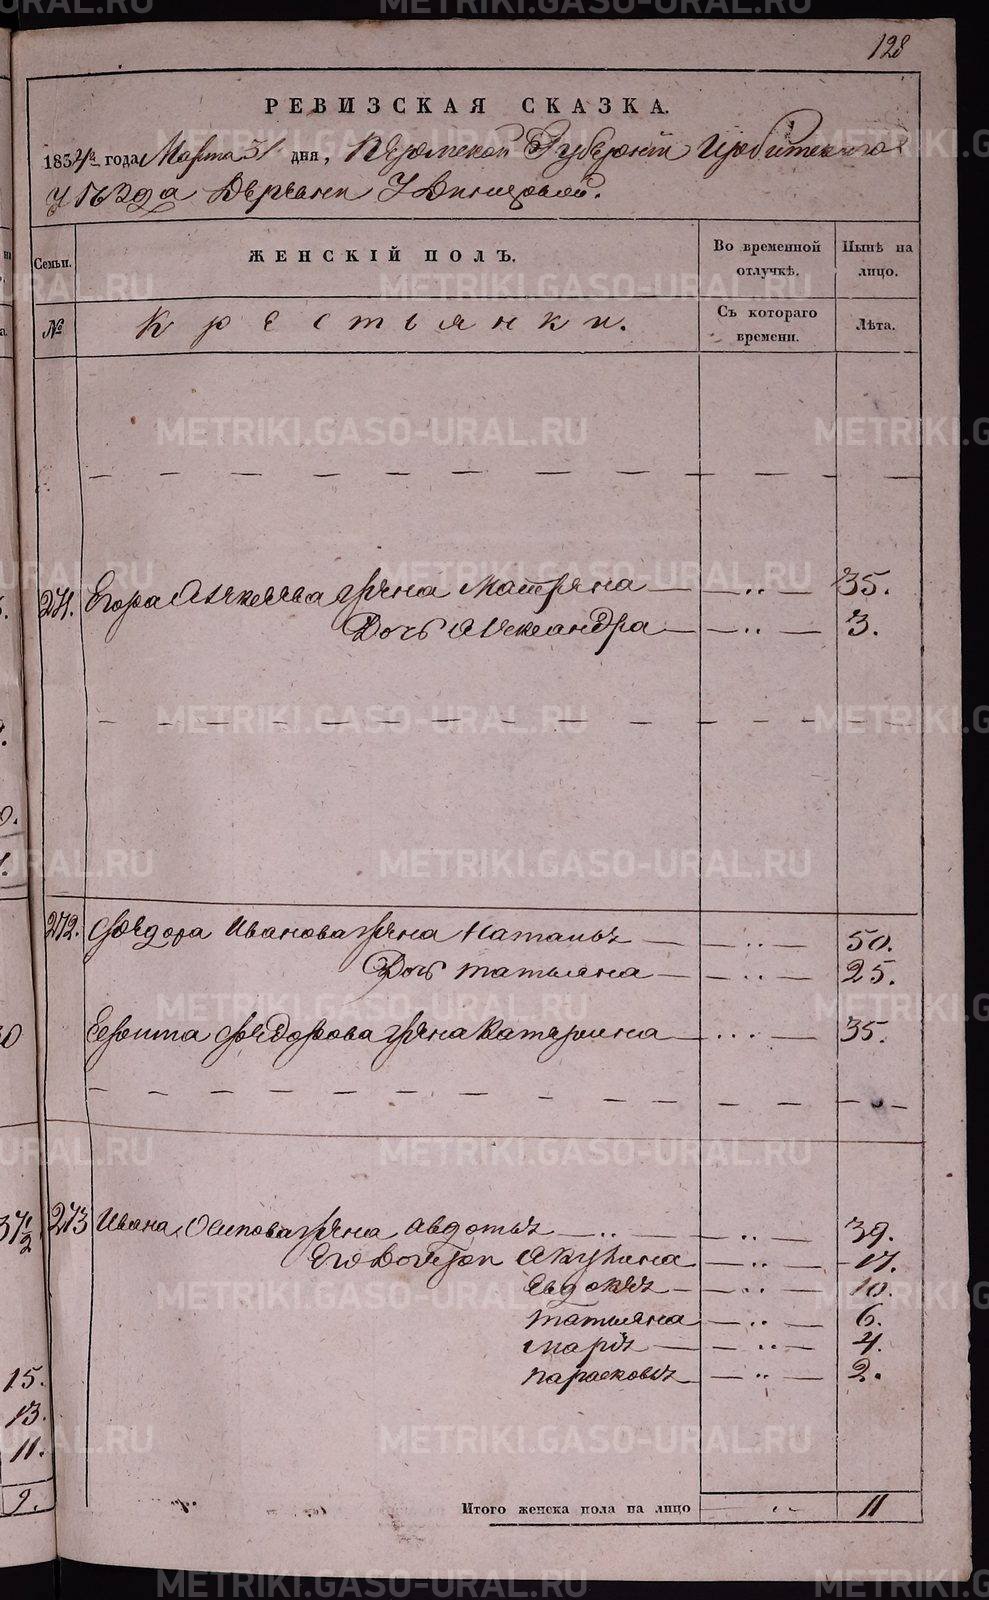 128
РЕВИЗСКАЯ СКАЗКА.
1834го года Марта 31 дня, Пермской Губернiи Ирбитского
уѣзда Деревни
Семьи. ЖЕНСКIЙ ПОЛЪ. Во временной отлучкѣ. Нынѣ на лицо.
№ Крестьянки. Съ котораго времени. Лѣта.
271. Егора Алексѣева жена Матрена 35.
Дочь Александра 3.
272. Федора Иванова жена Наталья 50.
Дочь Татьяна 25.
Федорова жена Катерина 35.
273 Ивана Осипова жена Авдотья 39.
Его Дочери Акулина 17.
Евдокья 10.
Татьяна 6.
Марья 4.
Парасковья 2.
Итого женска пола на лицо 11
15.
13.
11.
9.
METRIKI.GASO-URAL.RU